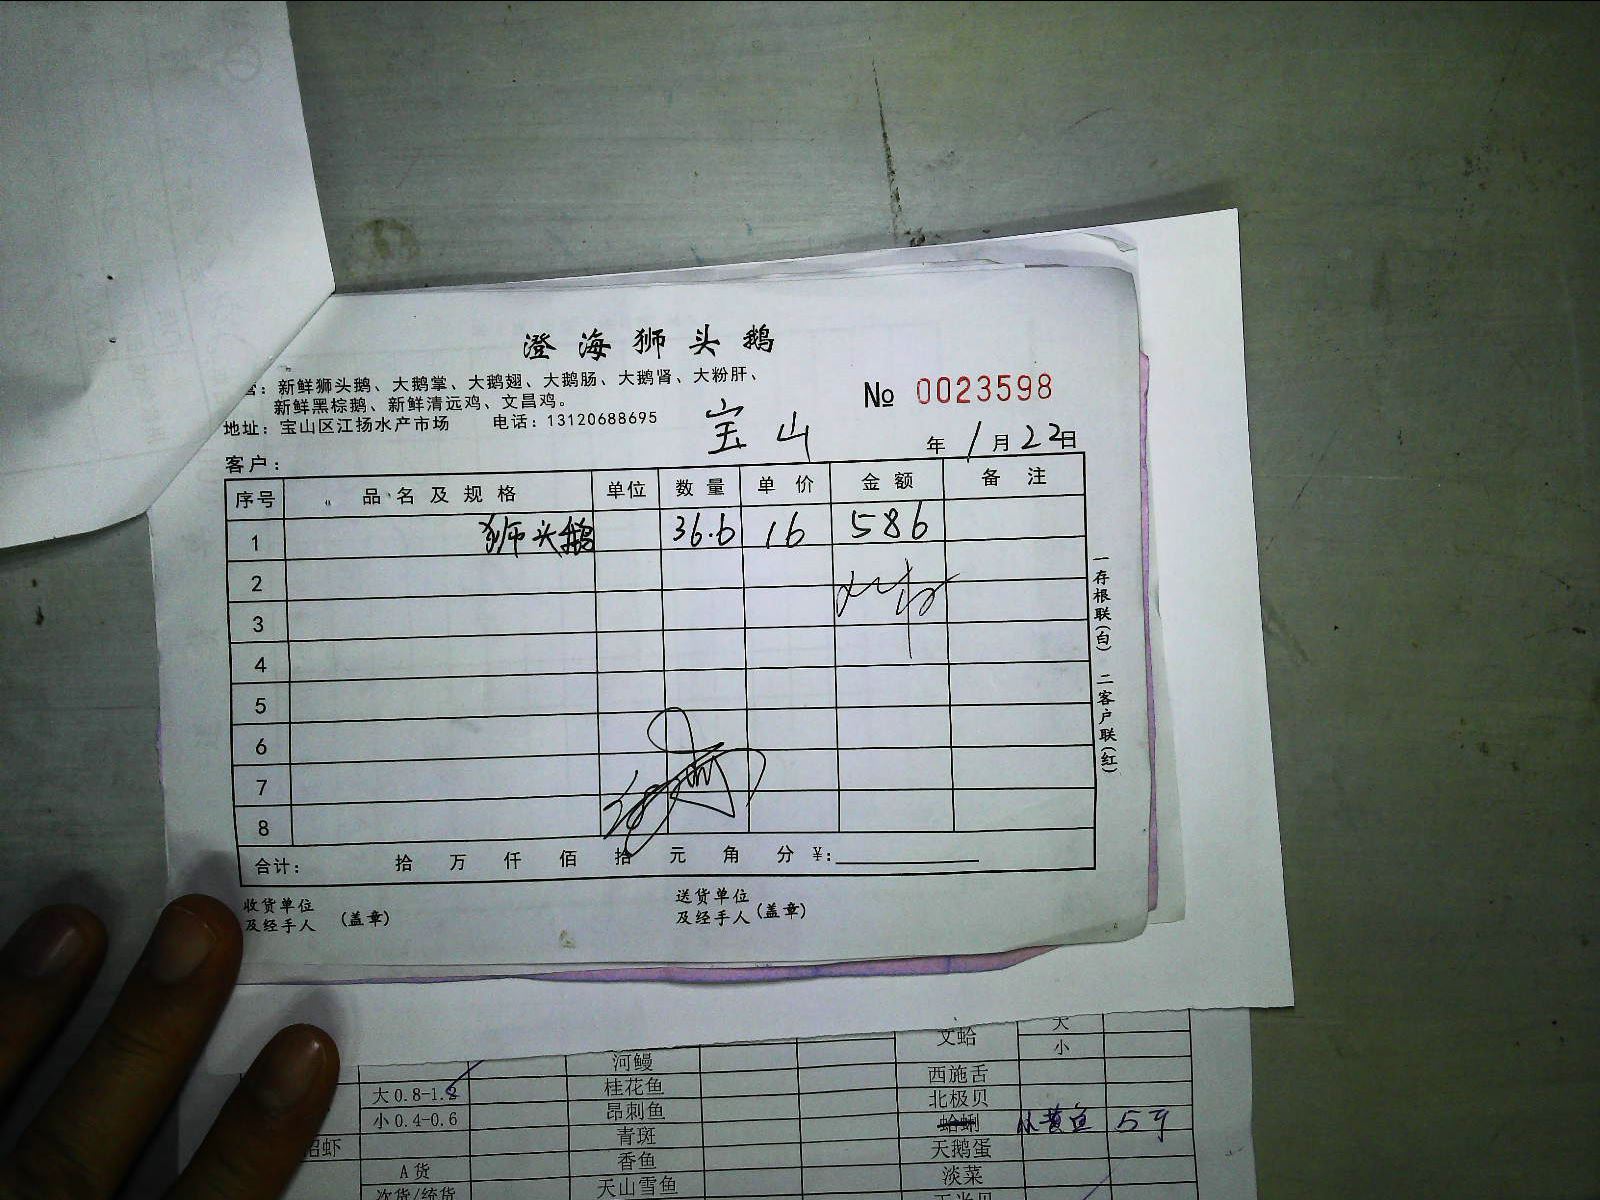 澄海狮头鹅
营：新鲜狮头鹅、大鹅掌、大鹅翅、大鹅肠、大鹅肾、大粉肝、
新鲜黑棕鹅、新鲜清远鸡、文昌鸡。
№ 0023598
地址：宝山区江扬水产市场 电话：13120688695
宝山
年 1月22日
客户：
序号 品名及规格 单位 数量 单价 金额 备注
1 狮头鹅 36.6 16 586
2
3
4
5
6
7
8
合计： 拾 万 仟 佰 拾 元 角 分 ￥:
一存根联(白) 二客户联(红)
收货单位
及经手人 (盖章)
送货单位
及经手人 (盖章)
文蛤 大
小
河鳗
西施舌
大0.8-1.2 桂花鱼
北极贝
小0.4-0.6 昂刺鱼
蛤蜊 小黄鱼 5斤
青斑
天鹅蛋
A货 香鱼
淡菜
次货/统货 天山雪鱼